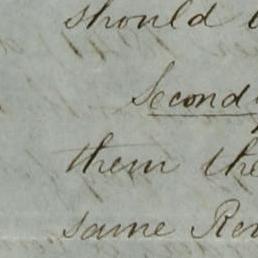 should
Second
them the
same